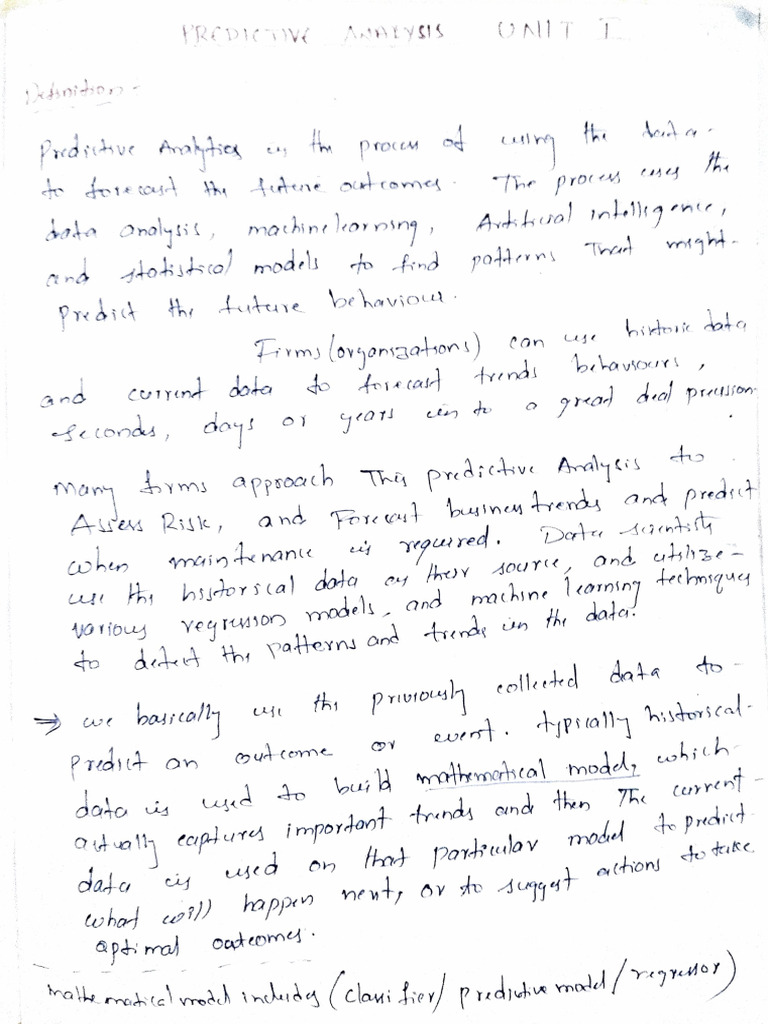 PREDICTIVE ANALYSIS UNIT I
Definition -
Predictive Analytics is the process of using the data
to forecast the future outcomes. The process uses the
data analysis, machine learning, Artificial intelligence,
and statistical models to find patterns That might
Predict the future behaviour.
Firms (organizations) can use historic data
and current data to forecast trends behaviours,
seconds, days or years in to a great deal precision.
Many firms approach This predictive Analysis to
Assess Risk, and Forecast business trends and predict
when maintenance is required. Data scientists
use the historical data as their source, and utilize
various regression models, and machine learning techniques
to detect the patterns and trends in the data.
⇒ we basically use the previously collected data to
Predict an outcome or event. typically historical
data is used to build mathematical model, which
actually captures important trends and then The current
data is used on that particular model to predict
what will happen next, or to suggest actions to take
optimal outcomes.
mathematical model includes (classifier/ predictive model/regressor)